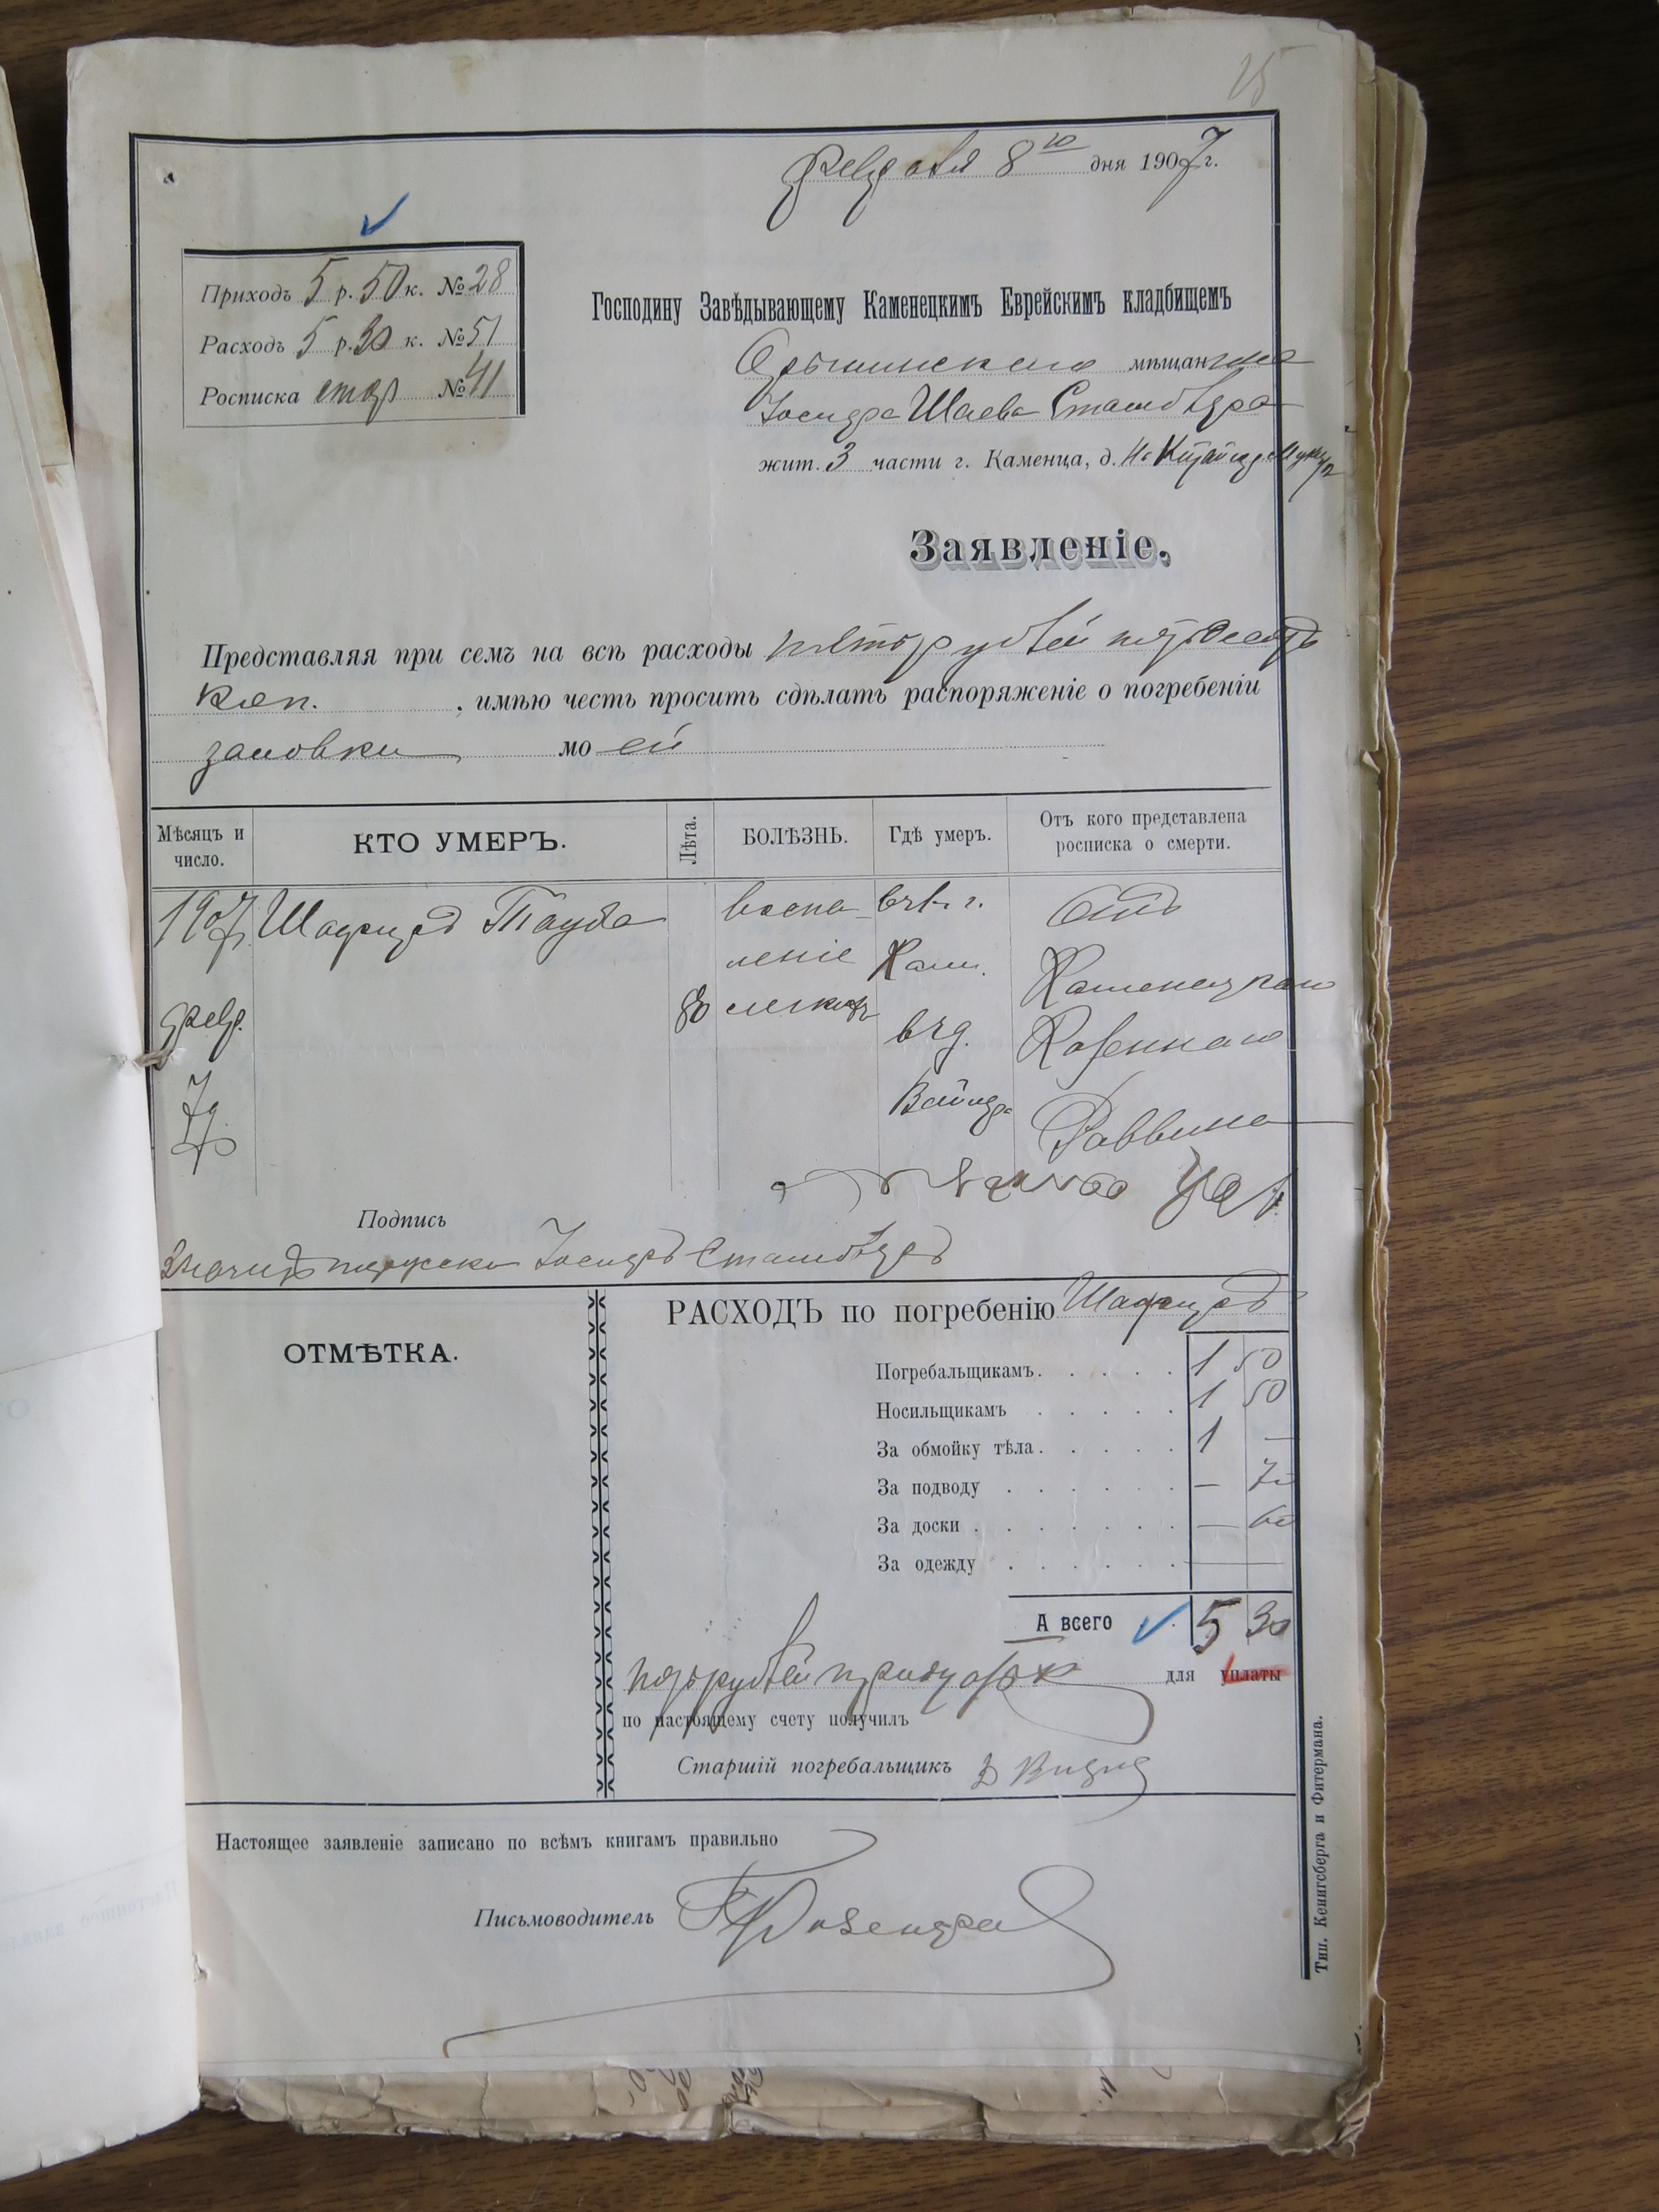 25
Февраля 8го дня 1907 г.
Приходъ 5 р. 50 к. № 28
Расходъ 5 р. 30 к. № 51
Росписка стар № 41
Господину Завѣдывающему Каменецкимъ Еврейскимъ кладбищемъ
мѣщанина
Іосифа Шаева
жит. 3 части г. Каменца, д.
Заявленіе.
Представляя при семъ на всѣ расходы пять рублей пятьдесятъ
коп. , имѣю честь просить сдѣлать распоряженіе о погребеніи
золовки моей
Мѣсяцъ и число. КТО УМЕРЪ. Лѣта. БОЛѢЗНЬ. Гдѣ умеръ. Отъ кого представлена росписка о смерти.
1907 Шафиръ Тауба воспа- въ г. Отъ
леніе Кам. Каменецкаго
февр. 80 легкихъ въ д. Казеннаго
7д. Раввина
Подпись
Значитъ порусски Іосифъ
ОТМѢТКА.
РАСХОДЪ по погребенію Шафиръ
Погребальщикамъ. 1 50
Носильщикамъ 1 50
За обмойку тѣла. 1 —
За подводу — 70
За доски — 60
За одежду — —
А всего 5 30
пять рублей тридцать к для уплаты
по настоящему счету получилъ
Старшій погребальщикъ
Настоящее заявленіе записано по всѣмъ книгамъ правильно
Письмоводитель
Тип. Кенигсберга и Фитермана.